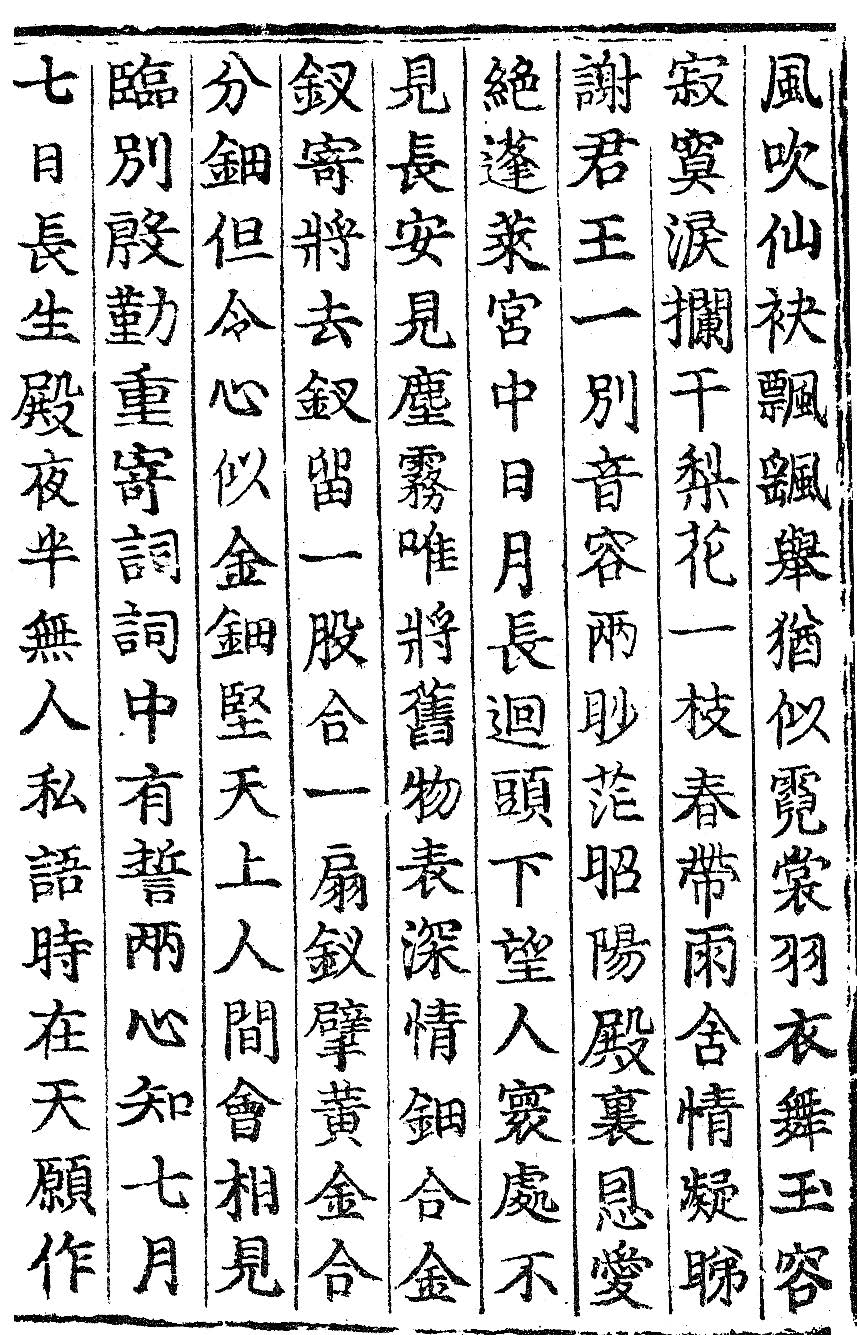 風吹仙袂飄颻舉猶似霓裳羽衣舞玉容
寂寞淚攔干梨花一枝春帶雨含情凝睇
謝君王一別音容兩眇茫昭陽殿裏恩愛
絕蓬萊宮中日月長迴頭下望人寰處不
見長安見塵霧唯將舊物表深情鈿合金
釵寄將去釵留一股合一扇釵擘黃金合
分鈿但令心似金鈿堅天上人間會相見
臨別殷勤重寄詞詞中有誓兩心知七月
七日長生殿夜半無人私語時在天願作